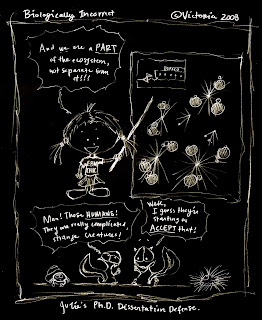 Biologically Incorrect
©Victoria 2008
And we are a PART
of the ecosystem,
not separate from
it!!!
Man! Those HUMANS!
They are really complicated,
strange creatures!
Well,
I guess they're
starting to
ACCEPT that!
Julia's Ph.D. Dessentation Defense.